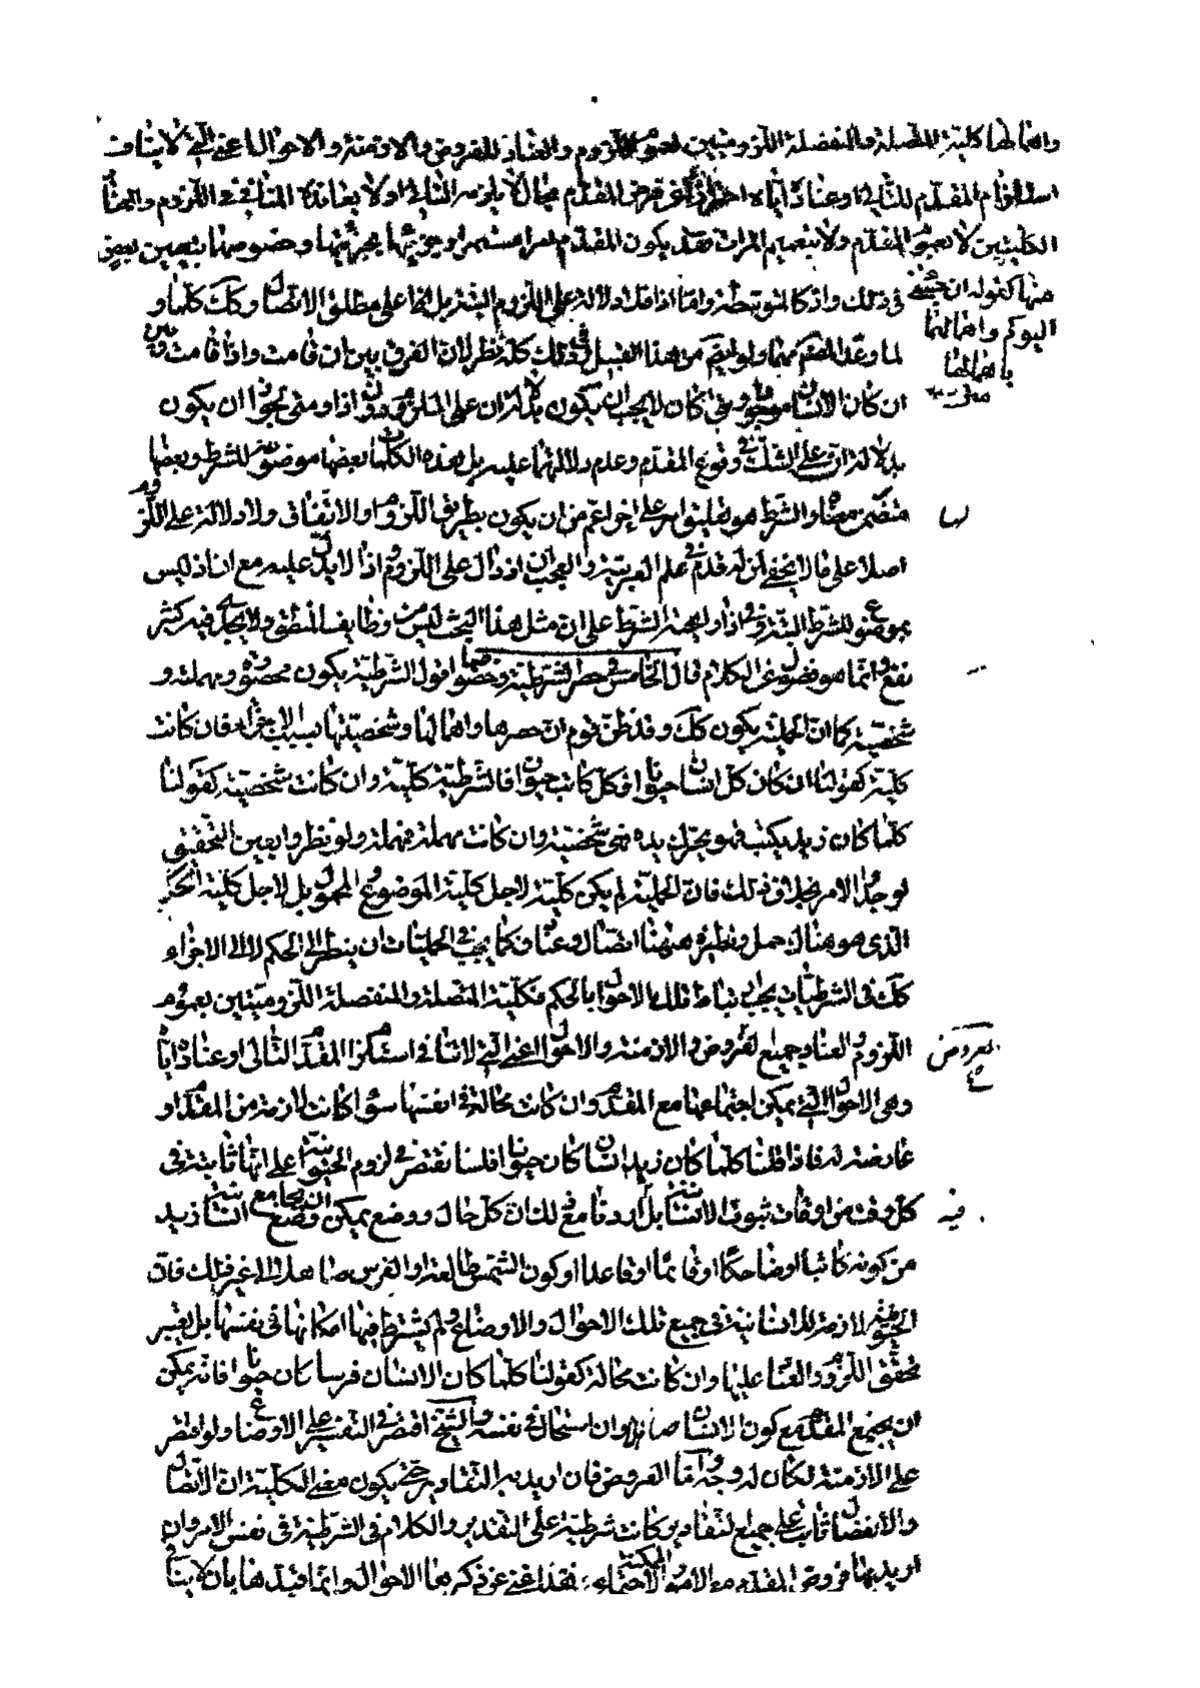 واهمالها كلية المتصلة والمنفصلة اللزوميتين بعموم اللزوم والعناد للفروض والازمنة والاحوال اعنى التى لا ينافى
استلزام المقدم للتالى او عناده اياه فرض المقدم بحال لا يلزمه التالى او لا يعانده المنافى فى اللزوم والعناد
الكليتين لا بعموم المقدم ولا بتعميم المرات فقد يكون المقدم امرا مستمرا وجزئيتها بجزئيتها وخصوصها بتعيين بعض
منها كقوله ان جئتنى
اليوم اكرمك واهمالها
باهمالها
متن
فى ذلك واذ كالمتوسطة واما اذا فلا دلالة له على اللزوم البتة بل انما على مطلق الاتصال وكذلك كلما و
لما وعد المصنف مهما ولو ايضا من هذا القبيل وفى ذلك كله نظر لان الفرق بين ان قامت واذا قامت
ان كان الانسان موجودا ومتى كان لا يجب ان يكون بان على اللزوم دون اذا ومتى لجواز ان يكون
بدلالة ان على الشك فى وقوع المقدم وعدم دلالتهما عليه بل هذه الكلمات بعضها موضوعة للشرط وبعضها
متضمن معناه والشرط هو تعليق امر على اخر اعم من ان يكون بطريق اللزوم او الاتفاق ولا دلالة له على اللزوم
لها
اصلا على ما لا يخفى لمن له قدم فى علم العربية والعجب ان اذ دال على اللزوم واذا لا يدل عليه مع ان اذ ليس
بموضوع للشرط البتة وفى اذا رايحة الشرط على ان مثل هذا البحث ليس من وظايف المنطق ولا يجدى فيه كثير
نفع وانما هو فضول من الكلام قال الخامس فى حصر الشرطية وخصوصها اقول الشرطية يكون محصورة ومهملة و
شخصية كما ان الحملية يكون كذلك وقد ظن قوم ان حصرها واهمالها وشخصيتها بسبب الاجزاء فان كانت
كلية كقولنا ان كان كل انسان حيوانا فكل كاتب حيوان فالشرطية كلية وان كانت شخصية كقولنا
كلما كان زيد يكتب فهو يحرك يده فهى شخصية وان كانت مهملة فمهملة ولو نظروا بعين التحقيق
لوجدوا الامر بخلاف ذلك فان الحملية لم يكن كلية لاجل كلية الموضوع والمحمول بل لاجل كلية الحكم
الذى هو هناك حمل ونظيره هيهنا اتصال وعناد فكما يجب فى الحمليات ان ينظر الى الحكم لا الى الاجزاء
كذلك فى الشرطيات يجب ارتباط تلك الاحوال بالحكم فكلية المتصلة والمنفصلة اللزوميتين بعموم
اللزوم والعناد جميع الفروض والازمنة والاحوال اعنى التى لا تنافى استلزام المقدم التالى او عناده اياه
الفروض
وهى الاحوال التى يمكن اجتماعها مع المقدم وان كانت محالة فى انفسها سواء كانت لازمة من المقدم او
عارضة له فاذا قلنا كلما كان زيد انسانا كان حيوانا فلسنا نقتصر فى لزوم الحيوانية على انها ثابتة فى
كل وقت من اوقات ثبوت الانسانية بل اردنا مع ذلك ان كل حال ووضع يمكن ان يجامع وضع انسانية زيد
فيه
من كونه كاتبا او ضاحكا او قائما او قاعدا او كون الشمس طالعة او الفرس صاهلا الى غير ذلك فان
الحيوانية لازمة للانسانية فى جميع تلك الاحوال والاوضاع ولم يشترط فيها امكانها فى نفسها بل يعتبر
تحقق اللزوم والعناد عليها وان كانت محالة كقولنا كلما كان الانسان فرسا كان حيوانا فانه يمكن
ان يجتمع المقدم مع كون الانسان صاهلا وان استحال فى نفسه والشيخ اقتصر فى التفسير على الاوضاع ولو اقتصر
على الازمنة لكان له وجه اما الفروض فان اريد به التقادير حتى يكون معنى الكلية ان الاتصال
والانفصال ثابت على جميع التقادير كانت شرطية على التقدير والكلام فى الشرطية فى نفس الامر وان
اريد بها فروض المقدم مع الامور الممكنة الاجتماع فقد اغنى عن ذكرها الاحوال وانما قيدها بان لا ينافى